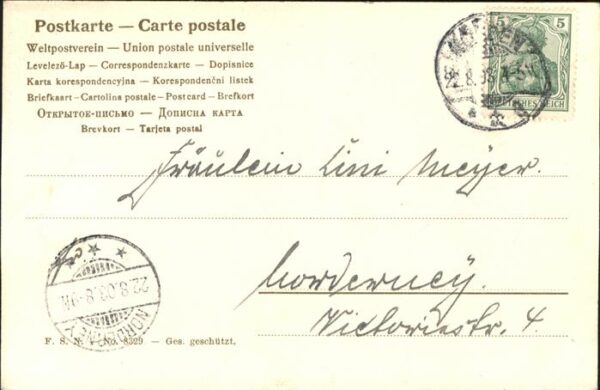 Postkarte — Carte postale
Weltpostverein — Union postale universelle
Levelező-Lap — Correspondenzkarte — Dopisnice
Karta korespondencyjna — Korespondenční listek
Briefkaart - Cartolina postale - Postcard - Brefkort
Открытое-письмо — Дописна карта
Brevkort — Tarjeta postal
5 5
DEUTSCHES REICH
Fräulein Lini Meyer.
Norderney.
Victoriastr. 4.
22.8.03.8-9N.
NORDERNEY
F. S. N. No. 8329 — Ges. geschützt.